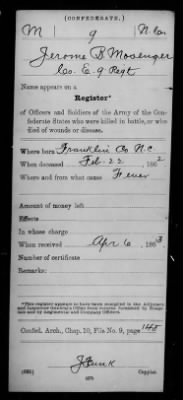 (CONFEDERATE.)
M 9 N.Ca.
Jerome B Mosenger
Co. E. 9 Regt
Name appears on a
Register*
of Officers and Soldiers of the Army of the Confederate States who were killed in battle, or who
died of wounds or disease.
Where born Franklin Co N.C.
When deceased Feb. 22, 1862
Where and from what cause Fever
Amount of money left
Effects
In whose charge
When received Apr 6, 1863
Number of certificate
Remarks:
*This register appears to have been compiled in the
Confed. Arch., Chap. 10, File No. 9, page 148
J Funk
Copyist.